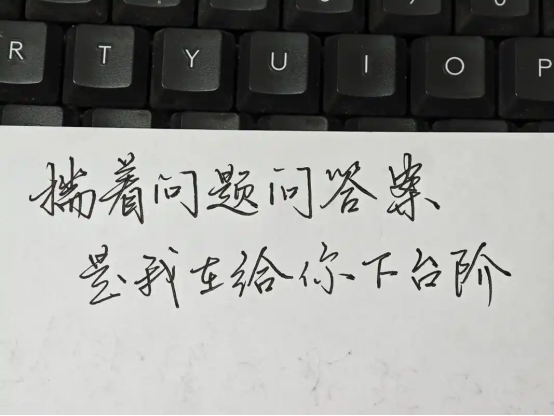 R T Y U I O P
揣着问题问答案
是我在给你下台阶